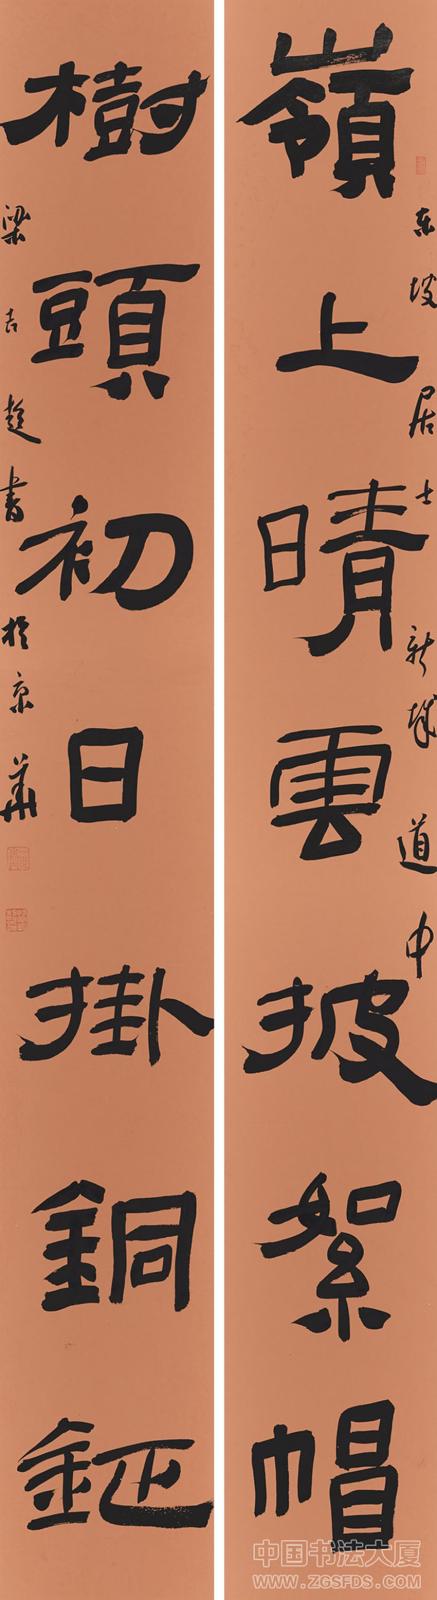 东坡居士新城道中
嶺上晴雲披絮帽
樹頭初日掛銅鉦
梁吉超書於京華
中国书法大厦
WWW.ZGSFDS.COM